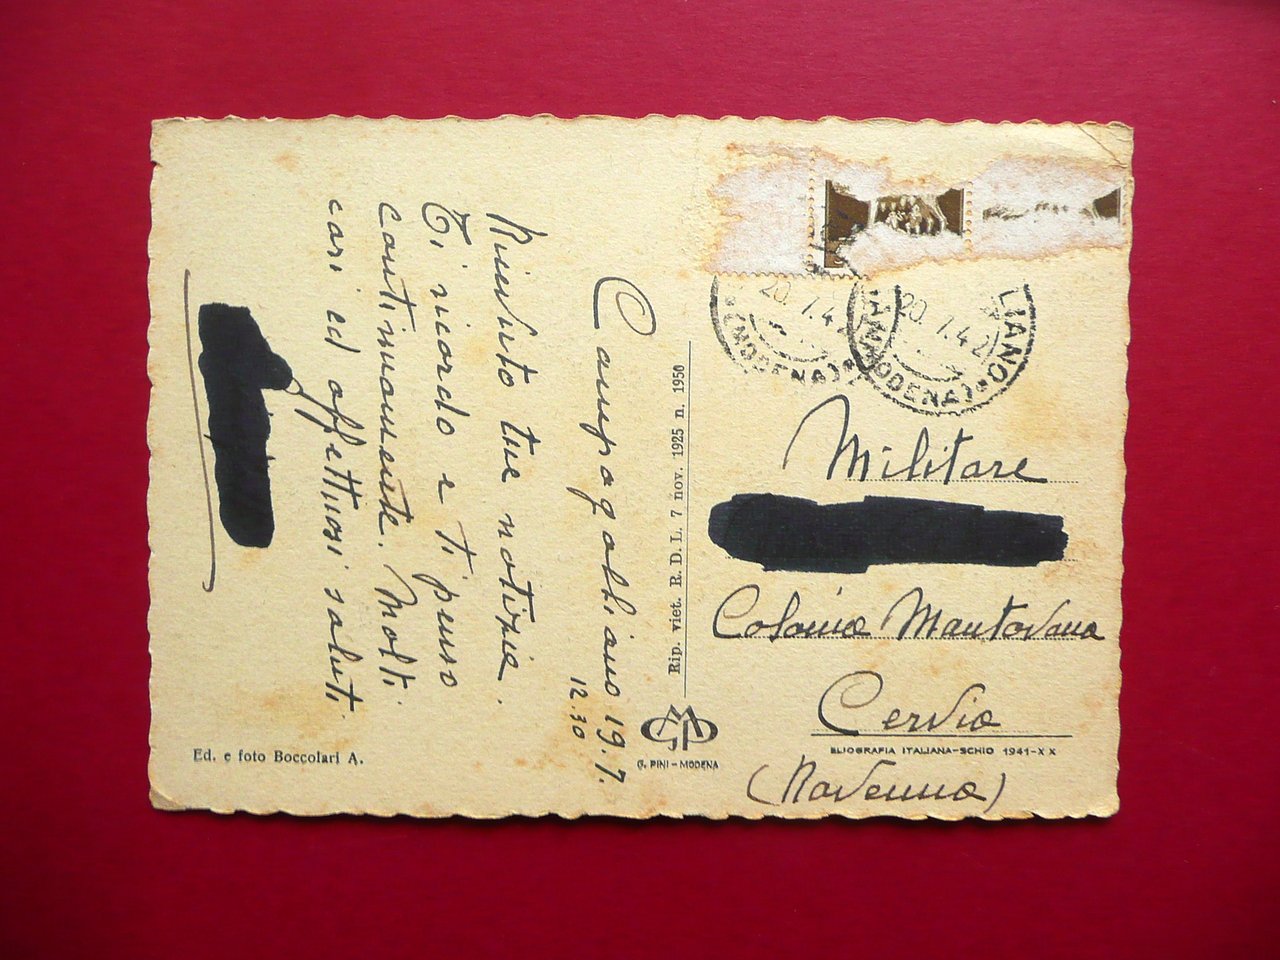 Campogalliano 19.7.
12.30
Ricevuto tue notizie.
Ti ricordo e ti penso
continuamente. Molti
cari ed affettuosi saluti
Ed. e foto Boccolari A.
Rip. viet. R. D. L. 7 nov. 1925 n. 1950
G. PINI - MODENA
20. 7.42
(MODENA)
20. 7.42
LIANO
(MODENA)
Militare
Colonia Mantovana
Cervia
ELIOGRAFIA ITALIANA-SCHIO 1941-XX
(Ravenna)